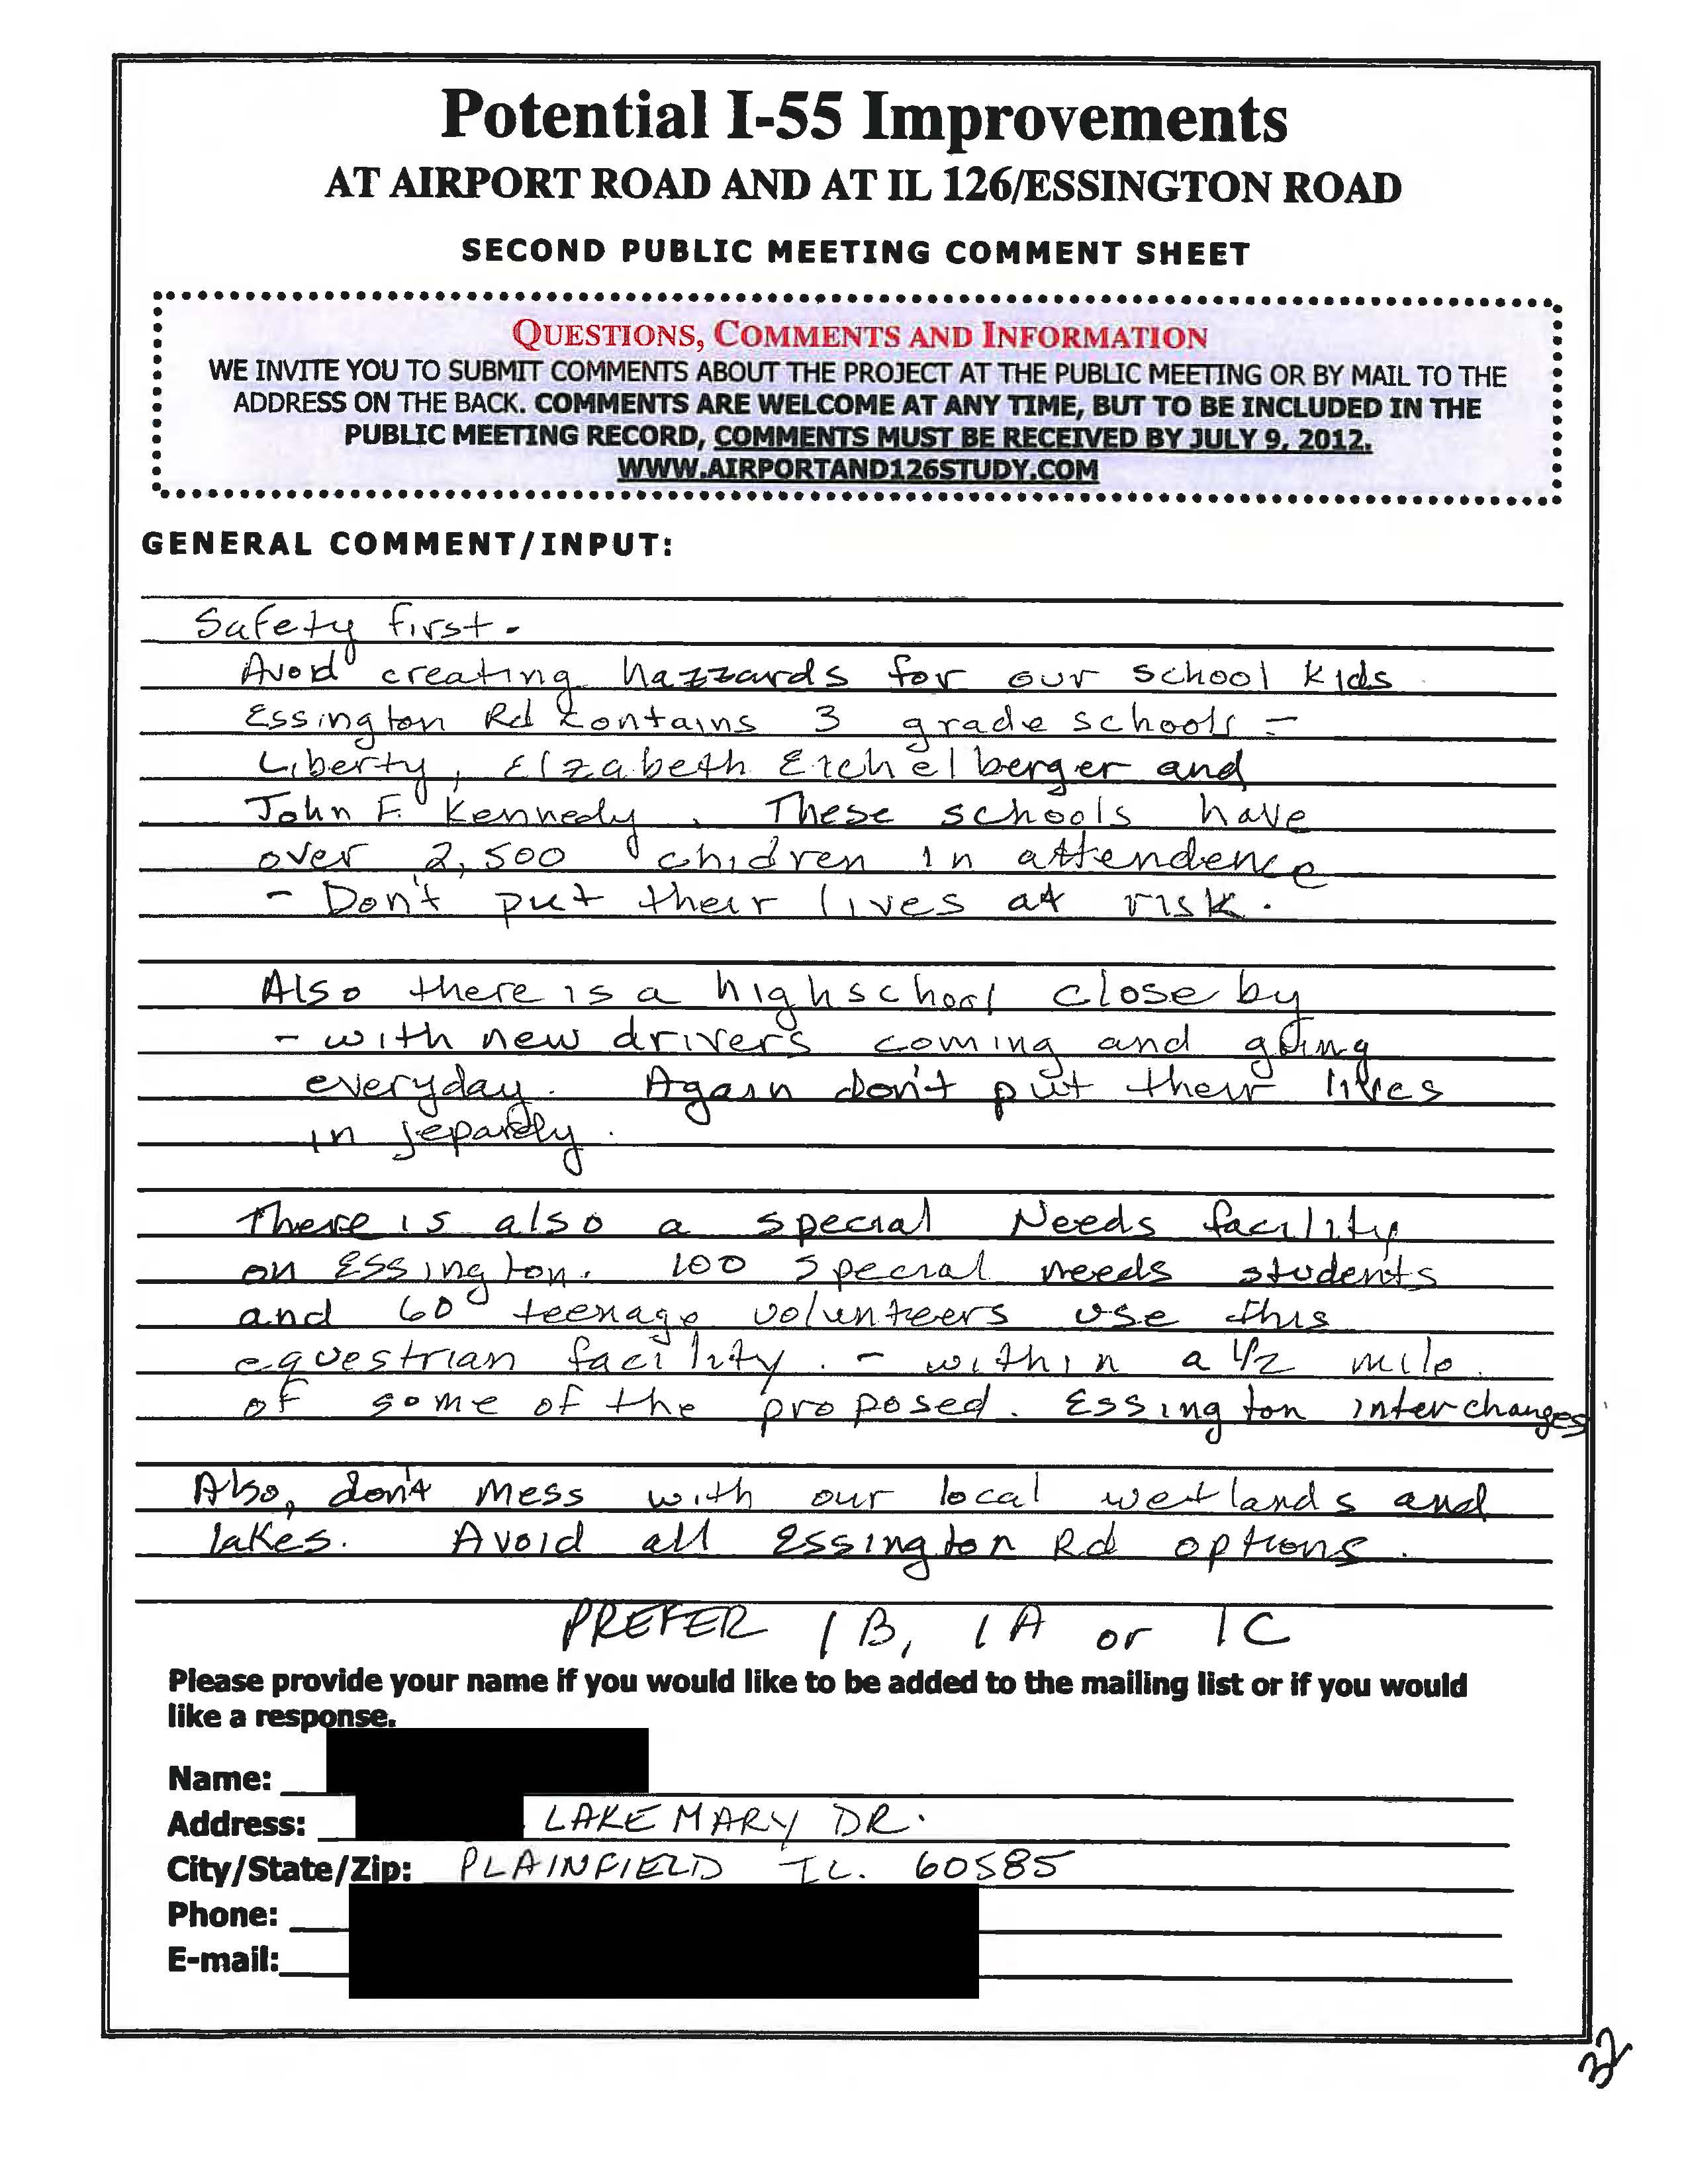 Potential I-55 Improvements
AT AIRPORT ROAD AND AT IL 126/ESSINGTON ROAD
SECOND PUBLIC MEETING COMMENT SHEET
QUESTIONS, COMMENTS AND INFORMATION
WE INVITE YOU TO SUBMIT COMMENTS ABOUT THE PROJECT AT THE PUBLIC MEETING OR BY MAIL TO THE
ADDRESS ON THE BACK. COMMENTS ARE WELCOME AT ANY TIME, BUT TO BE INCLUDED IN THE
PUBLIC MEETING RECORD, COMMENTS MUST BE RECEIVED BY JULY 9, 2012.
WWW.AIRPORTAND126STUDY.COM
GENERAL COMMENT/INPUT:
Safety first.
Avoid creating hazzards for our school kids
Essington Rd contains 3 grade schools -
Liberty, Elzabeth Eichelberger and
John F. Kennedy. These schools have
over 2,500 chidren in attendence
- Don't put their lives at risk.
Also there is a highschool close by
- with new drivers coming and going
everyday. Again don't put their lives
in jepardy.
There is also a special Needs facility
on Essington. 100 special needs students
and 60 teenage volunteers use this
equestrian facility. - within a 1/2 mile
of some of the proposed. Essington interchanges
Also, don't mess with our local wetlands and
lakes. Avoid all Essington Rd options.
PREFER 1B, 1A or 1C
Please provide your name if you would like to be added to the mailing list or if you would
like a response.
Name:
Address: LAKE MARY DR.
City/State/Zip: PLAINFIELD IL. 60585
Phone:
E-mail:
32